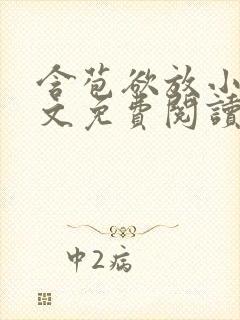 含苞欲放小
文免費閱讀
中2病